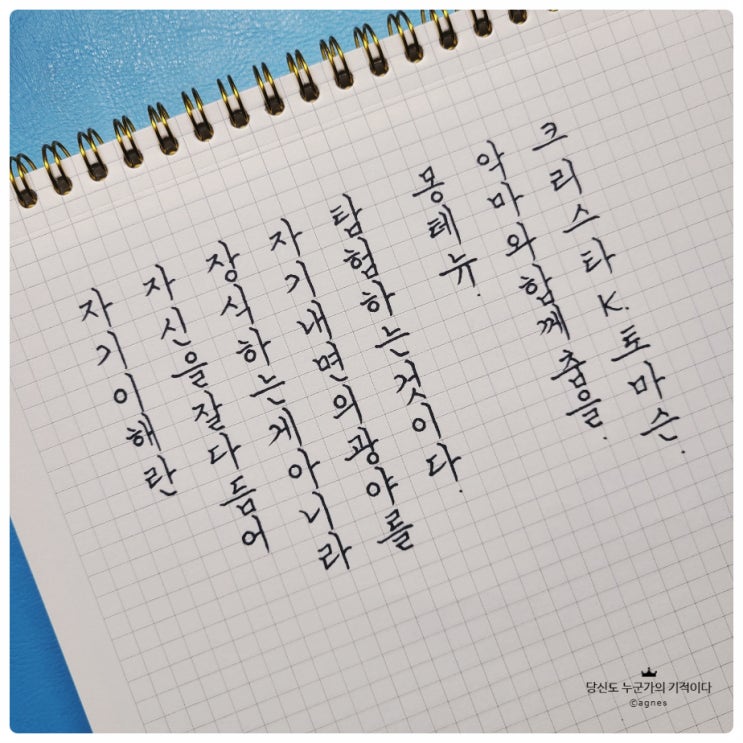 자기이해란
자신을잘다듬어
장식하는게아니라
자기내면의광야를
탐험하는것이다.
몽테뉴.
악마와함께춤을.
크리스타K.토마슨.
당신도 누군가의 기적이다
©agnes